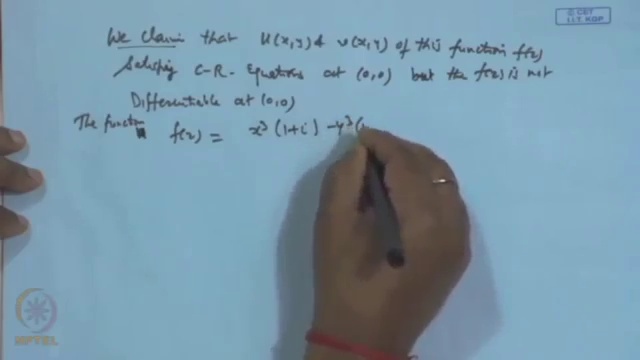 © CET
I.I.T. KGP
We Claim that u(x,y) & v(x,y) of this function f(z)
Satisfying C-R. Equations at (0,0) but the f(z) is not
Differentiable at (0,0)
The function f(z) = x³ (1+i) - y³(1
NPTEL